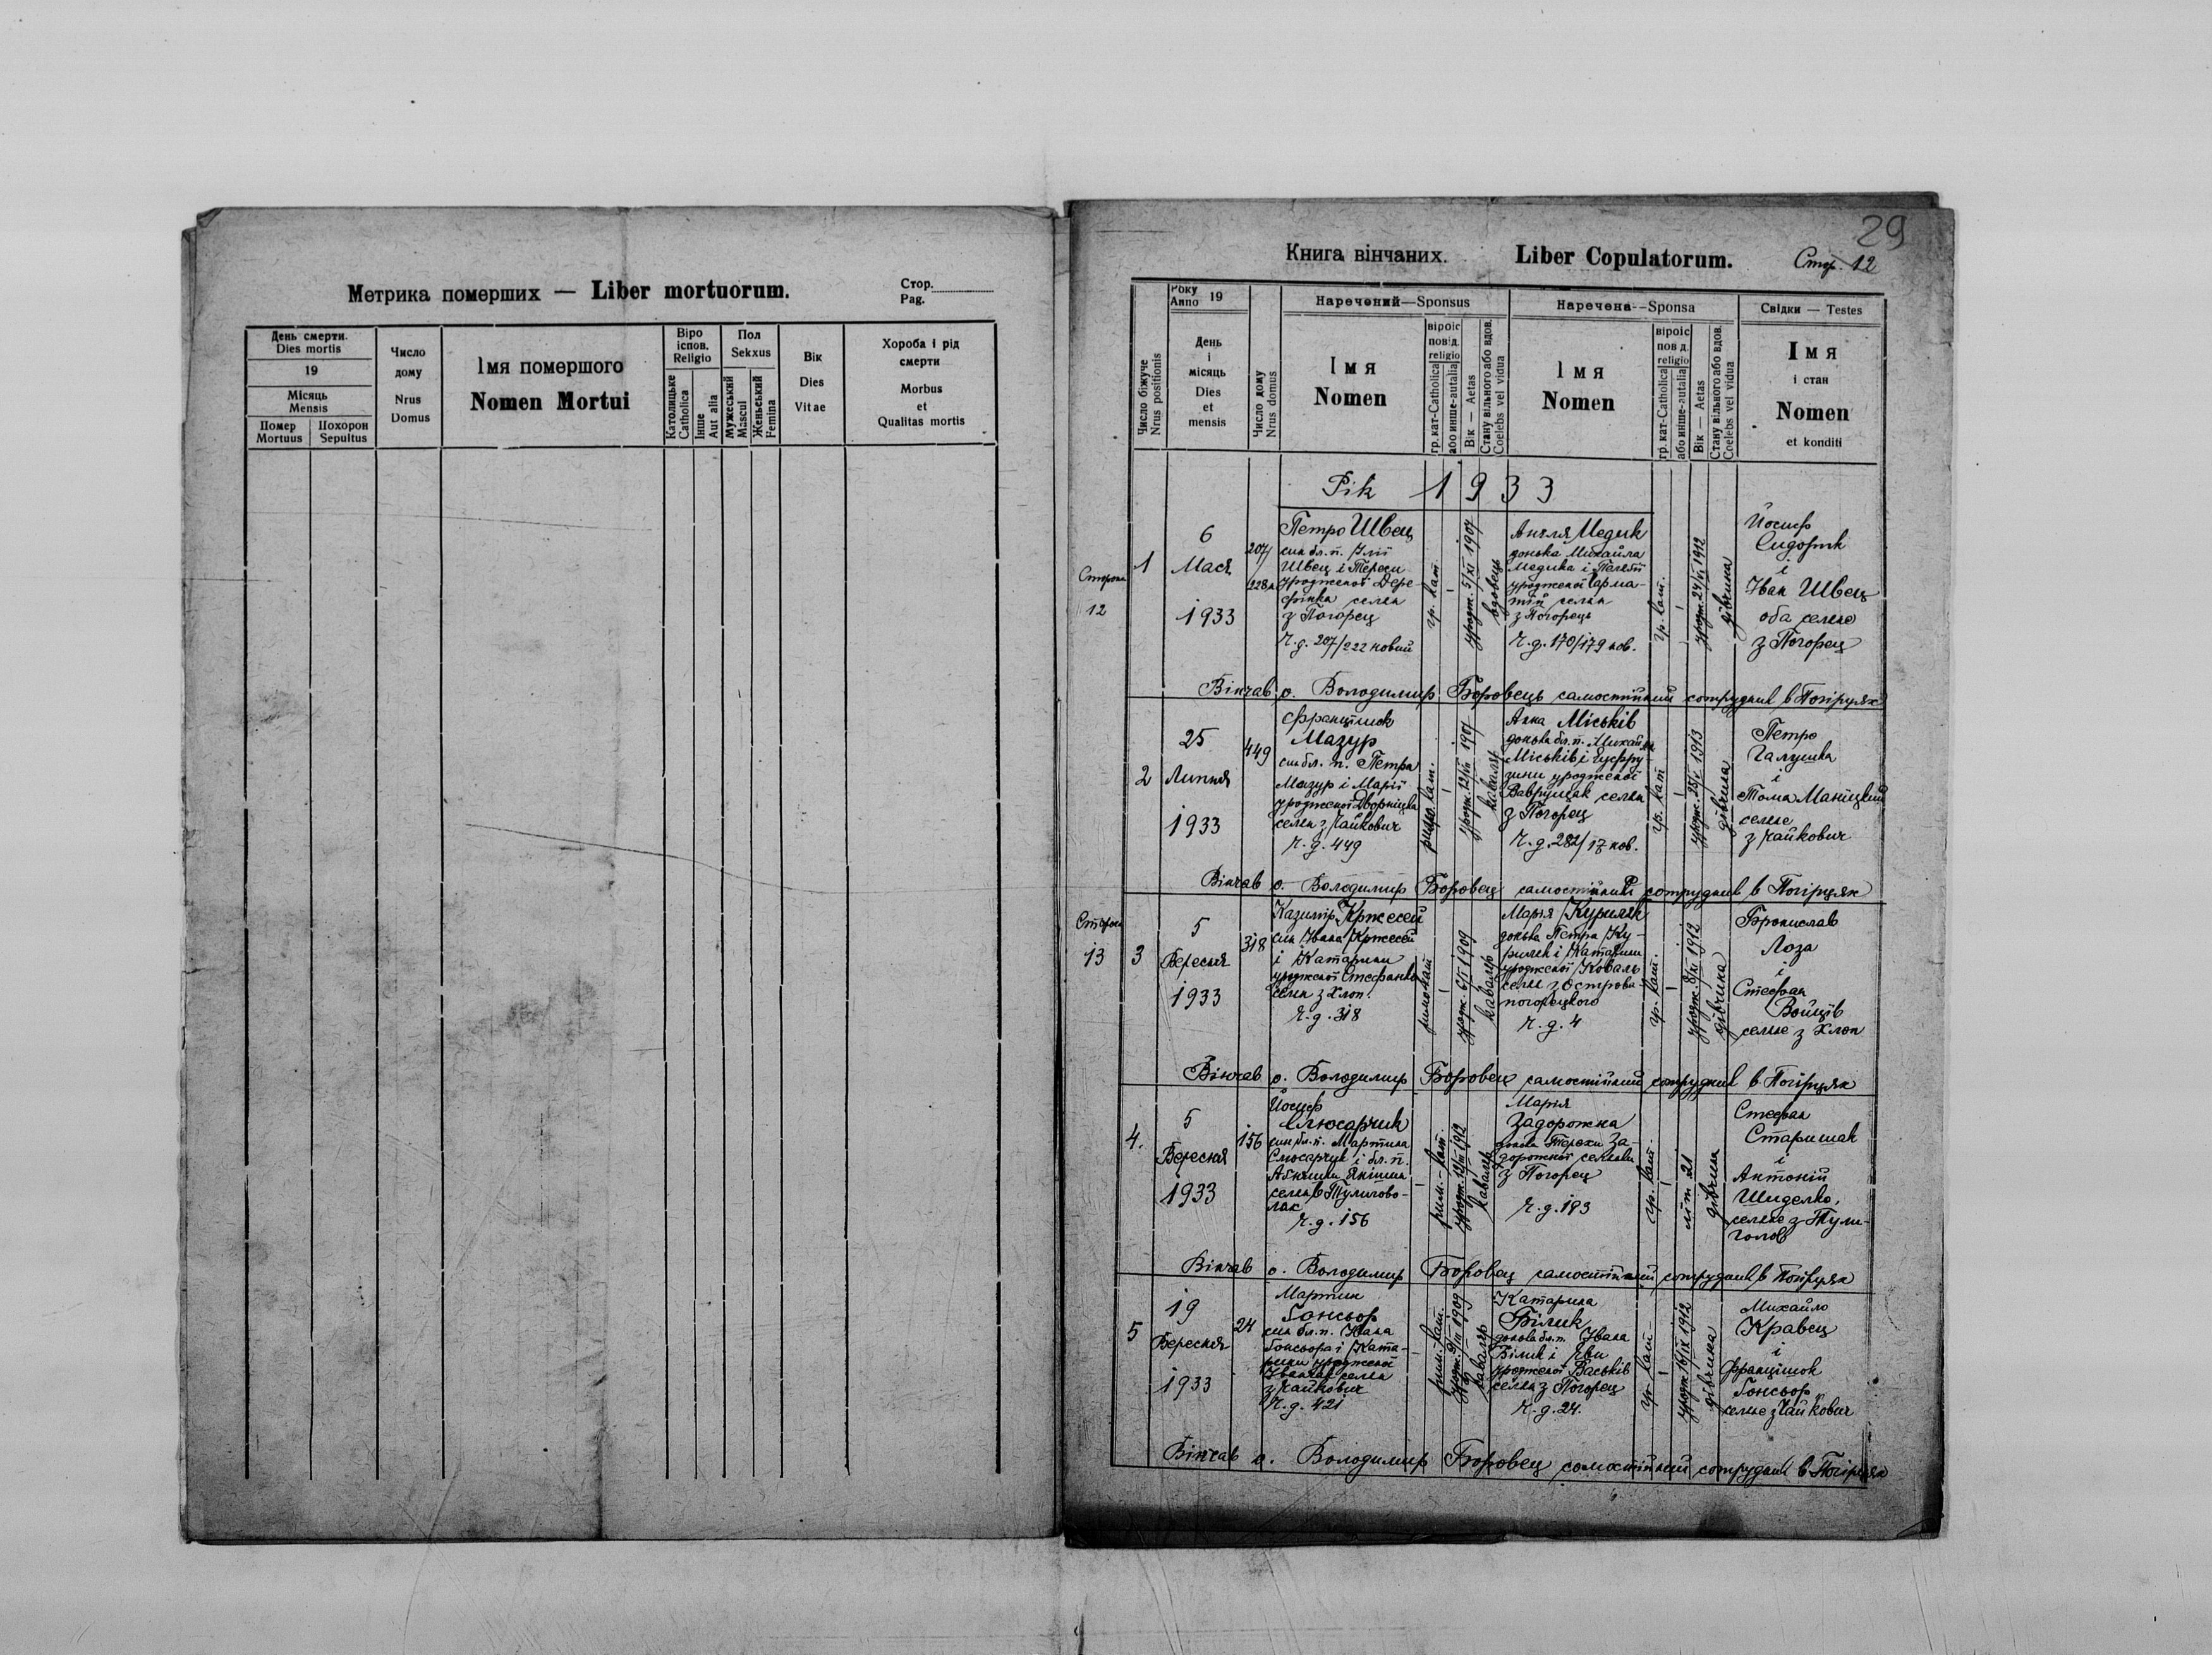 Метрика помєрших — Liber mortuorum.
Стор.
Pag.
День смерти.
Dies mortis
19
Місяць
Mensis
Помер
Mortuus
Похорон
Sepultus
Число
дому
Nrus
Domus
Імя помєршого
Nomen Mortui
Віро
ісповід.
Religio
Католицьке
Catholica
Інше
Aut alia
Пол
Sekxus
Мужеський
Mascul
Женьський
Femina
Вік
Dies
Vitae
Хороба і рід
смерти
Morbus
et
Qualitas mortis
29
Книга вінчаних. Liber Copulatorum. Стор. 12
Число біжуче
Nrus positionis
Року
Anno 19
День
і
місяць
Dies
et
mensis
Число дому
Nrus domus
Наречений—Sponsus
Імя
Nomen
віроіс
повід.
religio
гр. кат-Catholica
або инше-autalia
Вік — Aetas
Стану вільного або вдов.
Coelebs vel vidua
Наречена--Sponsa
Імя
Nomen
віроіс
повід.
religio
гр. кат-Catholica
або инше-autalia
Вік — Aetas
Стану вільного або вдов.
Coelebs vel vidua
Свідки — Testes
Імя
і стан
Nomen
et konditi
Рік 1933
Сторона
12
1
6
Мая
1933
207/
Петро Швец
син бл. п. Ілії
Швец і Тереси
уродженої Дере-
селян
з Погорец
Ч. д. 207/222 новий
гр. кат.
урод. 5/XI 1907
вдовець
Медик
донька Михайла
Медика і
уродженої Сарма-
тій селян
з Погорець
Ч. д. 170/179 нов.
гр. кат.
урод. 24/VI 1912
дівчина
Йосиф
Сидорик
і
Іван Швец
оба селяне
з Погорец
Вінчав о. Володимир Боровець самостійний сотрудник в Погірцях
2
25
Липня
1933
449
Францішок
Мазур
син бл. п. Петра
Мазур і Марії
уродженої Дворніцка
селян з Чайкович
ч. д. 449
римо. кат.
1907
кавалєр
Анна Міськів
донька бл. п. Михайла
Міськів і Єуфру-
зини уродженої
Ваврущак селян
з Погорец
Ч. д. 282/17 нов.
гр. кат
1913
дівчина
Петро
Галушка
і
Тома Маніцкий
селяне
з Чайкович
Вінчав о. Володимир Боровец самостійний сотрудник в Погірцях
Сторона
13
3
5
Вересня
1933
318
Казимір Кржесей
син Івана Кржесей
і Катарини
уродженої Стефанко
селян з Хлоп.
ч. д. 318
римо кат
урод. 6/II 1909
кавалєр
Марія Куриляк
донька Петра Ку-
риляк і Катарини
уродженої Коваль
селян з Острова
погорецкого
ч. д. 4
гр. кат.
урод. 8/XI 1912
дівчина
Броніслав
Лоза
і
Стефан
Войців
селяне з Хлоп
Вінчав о. Володимир Боровец самостійний сотрудник в Погірцях
4.
5
Вересня
1933
156
Йосиф
Слюсарчик
син бл. п. Мартина
Слюсарчик і бл. п.
Агнишки Якімик
селян в Тулиголо-
вах
ч. д. 156
рим.-кат.
1912
кавалєр
Марія
Задорожна
донька За-
дорожної селянки
з Погорец
ч. д. 193
гр. кат.
літ 21
дівчина
Стефан
Старишак
і
Антоній
Шиделко,
селяне з Тули-
голов
Вінчав о. Володимир Боровец самостійний сотрудник в Погірцях
5
19
Вересня
1933
24
Мартин
Гонсьор
син бл. п. Івана
Гонсьора і Ката-
рини уродженої
селян
з Чайкович
ч. д. 421
рим. кат.
1909
кавалєр
Катарина
Білик
донька бл. п. Івана
Білик і Еви
уродженої Васьків
селян з Погорец
ч. д. 24.
гр. кат
урод. 16/IX 1912
дівчина
Михайло
Кравец
і
Францішок
Гонсьор
селяне з Чайкович
Вінчав о. Володимир Боровец самостійний сотрудник в Погірцях